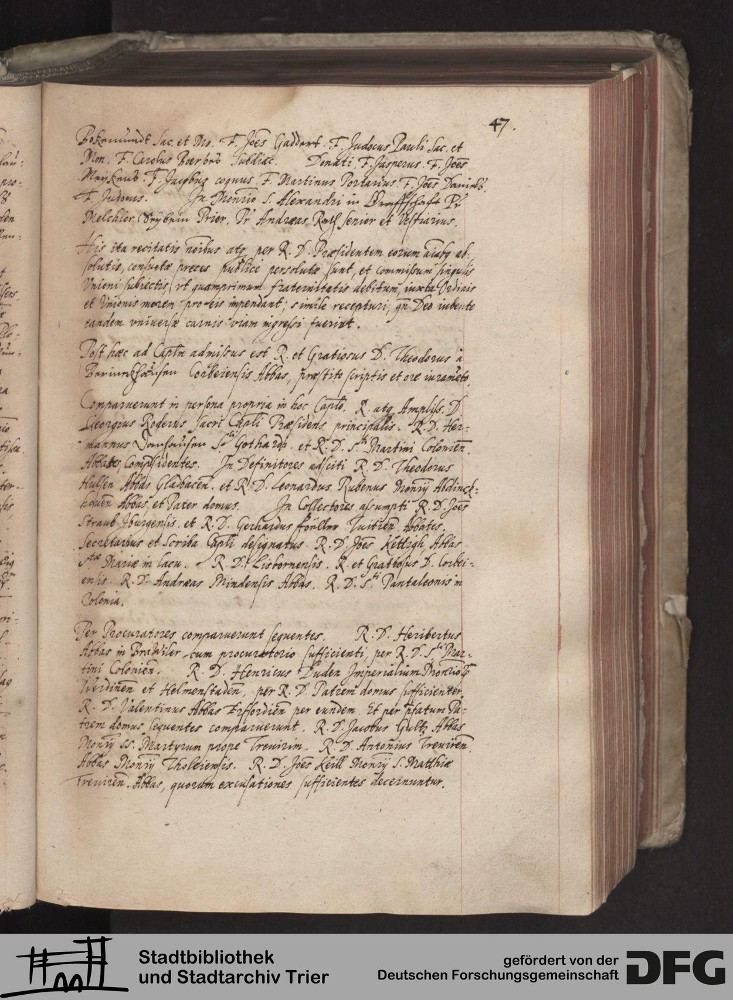 47.
Sac. et Mo. F. Joēs Gaddert. F. Judocus Pauli Sac. et
Mon. F. Carolus subdiac. Donati F. Jasperus. F. Joēs
F. Jacobus coquus. F. Martinus Portarius. F. Joēs Daniels.
F. In S. Alexandri in Pr.
Melchior Prior. Pr Andreas, Senior et Vestiarius.
His ita recitatis atq. per R. D. Præsidentem eorum ab-
solutis, consuetæ preces publicè persolutæ sunt, et commissum singulis
Unioni subiectis, vt quamprimum fraternitatis debitum iuxta Ordinis
et Vnionis morem pro eis impendant; simile recepturi, Deo iubente
tandem vniuersæ carnis viam ingressi fuerint.
Post hæc ad Caplm admissus est R. et Gratiosus D. Theodorus à
Corbeiensis Abbas, præstito scriptis et ore iuramēto.
Comparuerunt in persona propria in hoc Caplo. R. atq. Ampliss. D.
Georgius Rogerus sacri Capli Præsidens principalis. R. D. Her-
mannus Sti Gothardi. et R. D. Sti Martini Colonien.
Abbates Compræsidentes. In Definitores adsciti R. D. Theodorus
Hulsen Abbas Gladbacen. et R. D. Leonardus Rubenus Monrij Abdinck-
houen Abbas, et Pater domus. In Collectores assumpti R. D. Joēs
Iburgensis. et R. D. Gerhardus Tuitien. Abbates.
Secretarius et Scriba Capli designatus R. D. Joēs Kettigh Abbas
Stæ Mariæ in lacu. R. D. Lisbornensis. R. et Gratiosus D. Corbei-
ensis. R. D. Andreas Mindensis Abbas. R. D. Sti Pantaleonis in
Colonia.
Per Procuratores comparuerunt sequentes. R. D. Heribertus
Abbas in Brawiler cum procuratorio sufficienti, per R. D. Sti Mar-
tini Colonien. R. D. Henricus Duden Imperialium
Werdinen. et Helmenstaden. per R. D. Patrem domus sufficienter.
R. D. Valentinus Abbas per eundem. Et per Pa-
trem domus sequentes comparuerunt. R. D. Jacobus Gultz Abbas
Monrij SS. Martyrum prope Trevirim. R. D. Antonius Treviren.
Abbas Monrij Tholeiensis. R. D. Joēs Keill Monrij S. Matthiæ
Treviren. Abbas, quorum excusationes sufficientes decernuntur.
Stadtbibliothek
und Stadtarchiv Trier
gefördert von der
Deutschen Forschungsgemeinschaft
DFG